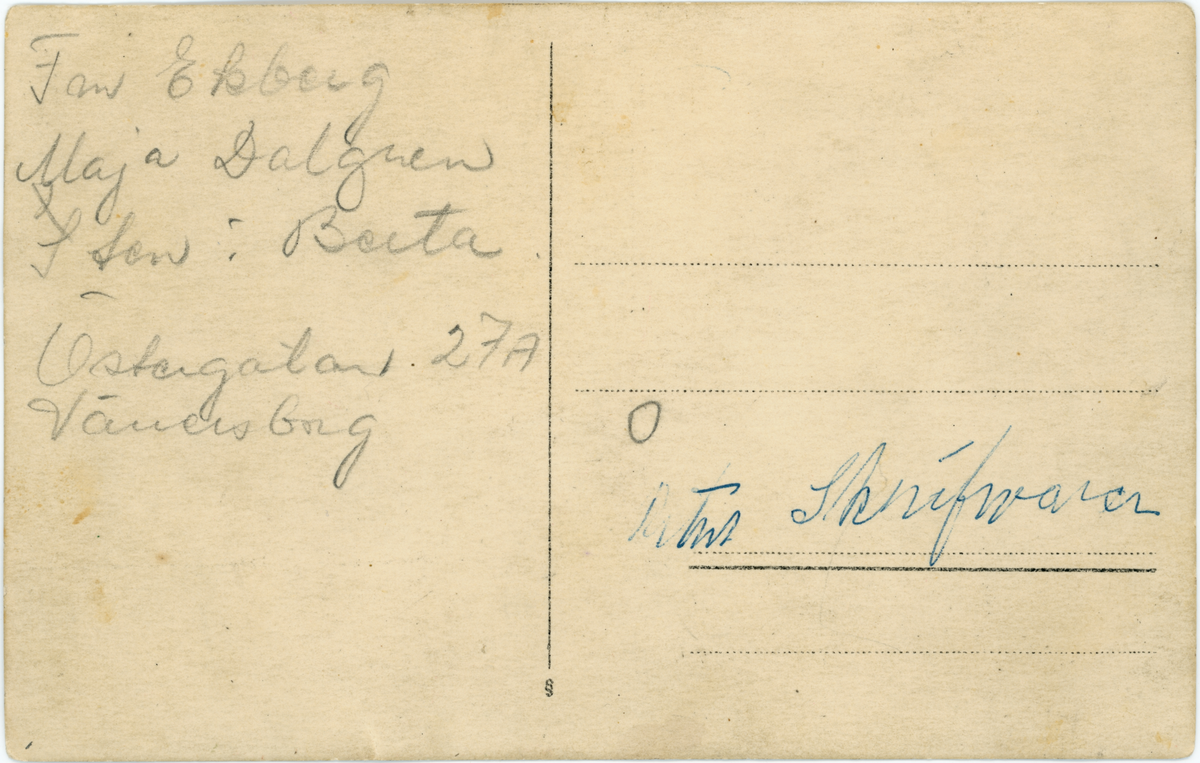 Fru Ekberg
Maja Dalgren
Sten : Berta
Östergatan 27A
Vänersborg
O
Skrifvaren
§